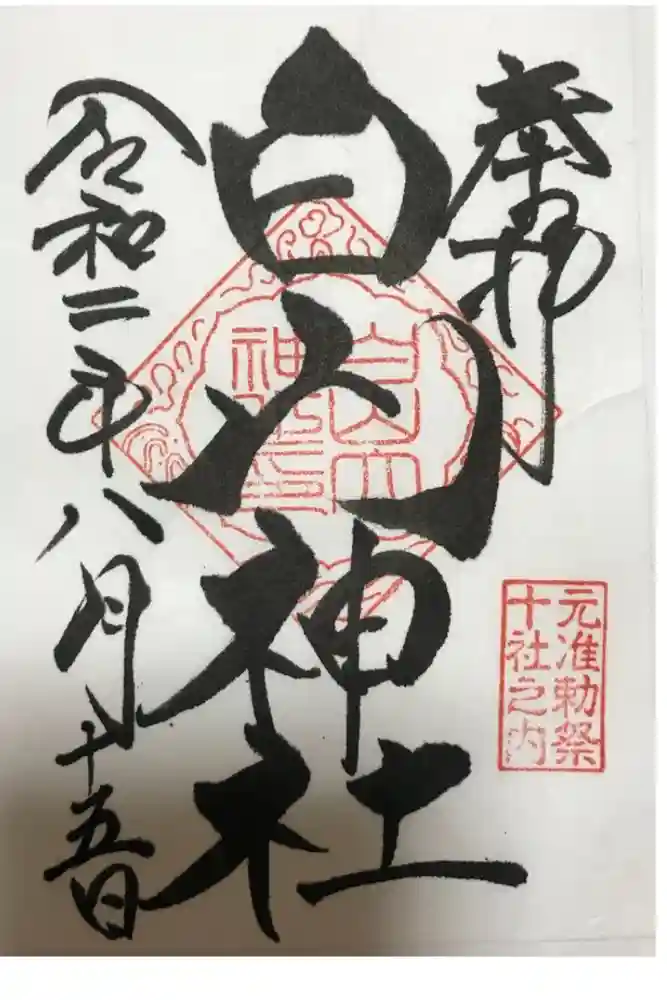 奉拝
白山神社
令和二年八月十五日
白山神社印
元准勅祭
十社之内